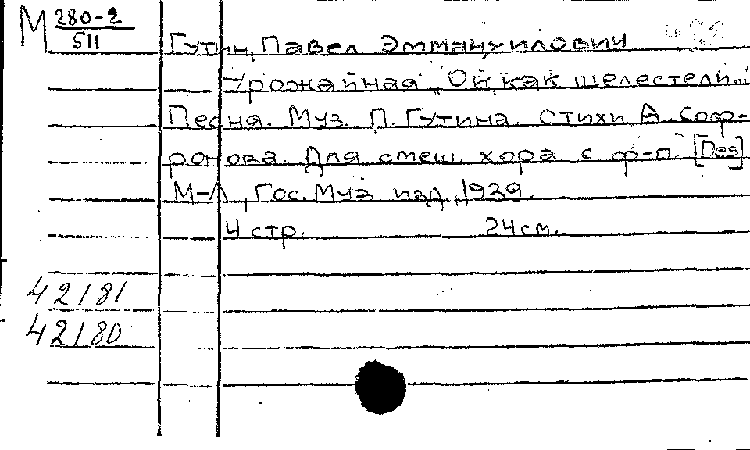 М 280-2
511
Гутин, Павел Эммануилович
Урожайная „Ой, как шелестели..."
Песня. Муз. П. Гутина. Стихи А. Соф-
ронова. Для смеш. хора с ф-п.
М-Л, Гос. Муз. изд., 1939.
4 стр. 24 см.
42181
42180